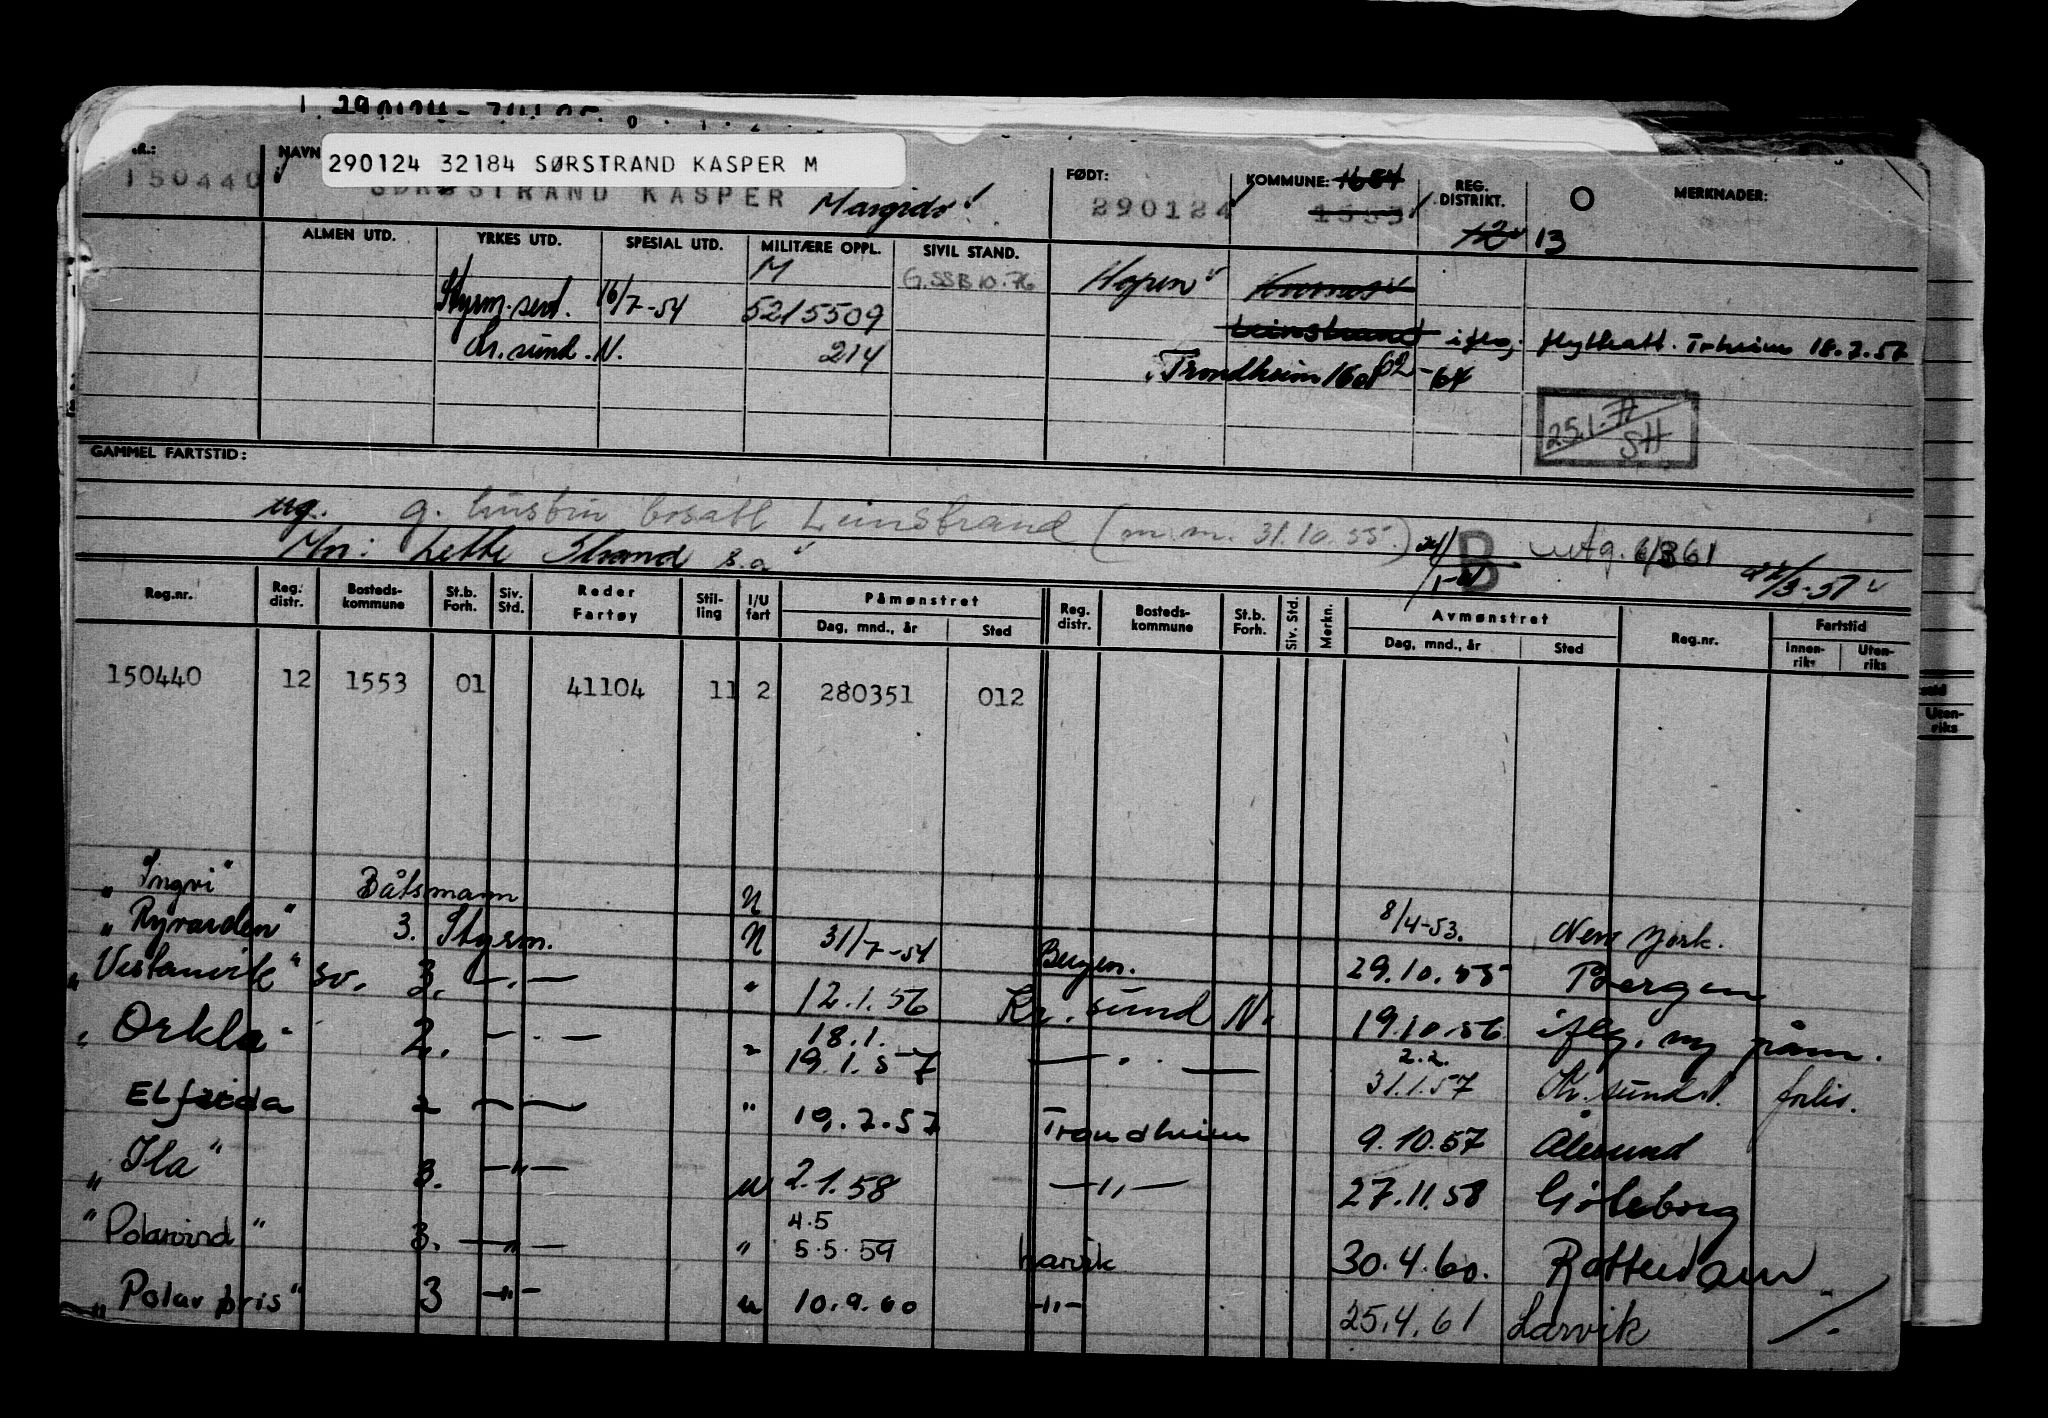 290124 32184 SØRSTRAND KASPER M
NAVN
150440 SØRØSTRAND KASPER Margido FØDT: 290124 KOMMUNE: 1654 1553 REG. DISTRIKT. 12 13 MERKNADER:
ALMEN UTD. YRKES UTD. SPESIAL UTD. MILITÆRE OPPL. SIVIL STAND.
M G.SSB 10.76 Hopen
Styrm.sert. 16/7-54 5215509 Leinstrand iflg. flyttatt. Trheim 18.7.57
Kr.sund.N. 214 Trondheim 1601 62-64
25.1.71
SH
GAMMEL FARTSTID:
ug. g. hustru bosatt Leinstrand (m.m. 31.10.55.) B utg. 6/3 61
M/n: Lette Strand s.a.
Reg.nr. Reg. distr. Bosteds-kommune St.b. Forh. Siv. Std. Reder Fartøy Stilling I/U fart Påmønstret Dag, mnd., år Sted Reg. distr. Bosteds-kommune St.b. Forh. Siv. Std. Merkn. Avmønstret Dag, mnd., år Sted Reg.nr. Fartstid Innen-riks Uten-riks
150440 12 1553 01 41104 11 2 280351 012
"Ingvi" Båtsmann U 8/4-53. New York.
"Ryvarden" 3. Styrm. U 31/7-54 Bergen. 29.10.55 Bergen
"Vestanvik" sv. 3. —"— " 12.1.56 Kr. sund N. 19.10.56 iflg. ny påm.
"Orkla" 2. —"— " 18.1. 19.1.57 —"— 2.2. 31.1.57 Kr.sund N. forlis.
Elfrida 2 —"— " 19.7.57 Trondheim 9.10.57 Ålesund
"Ila" 3. —"— u 2.1.58 —"— 27.11.58 Göteborg
"Polarvind" 3. —"— " 4.5 5.5.59 Larvik 30.4.60. Rotterdam
"Polarpris" 3 —"— u 10.9.60 —"— 25.4.61 Larvik